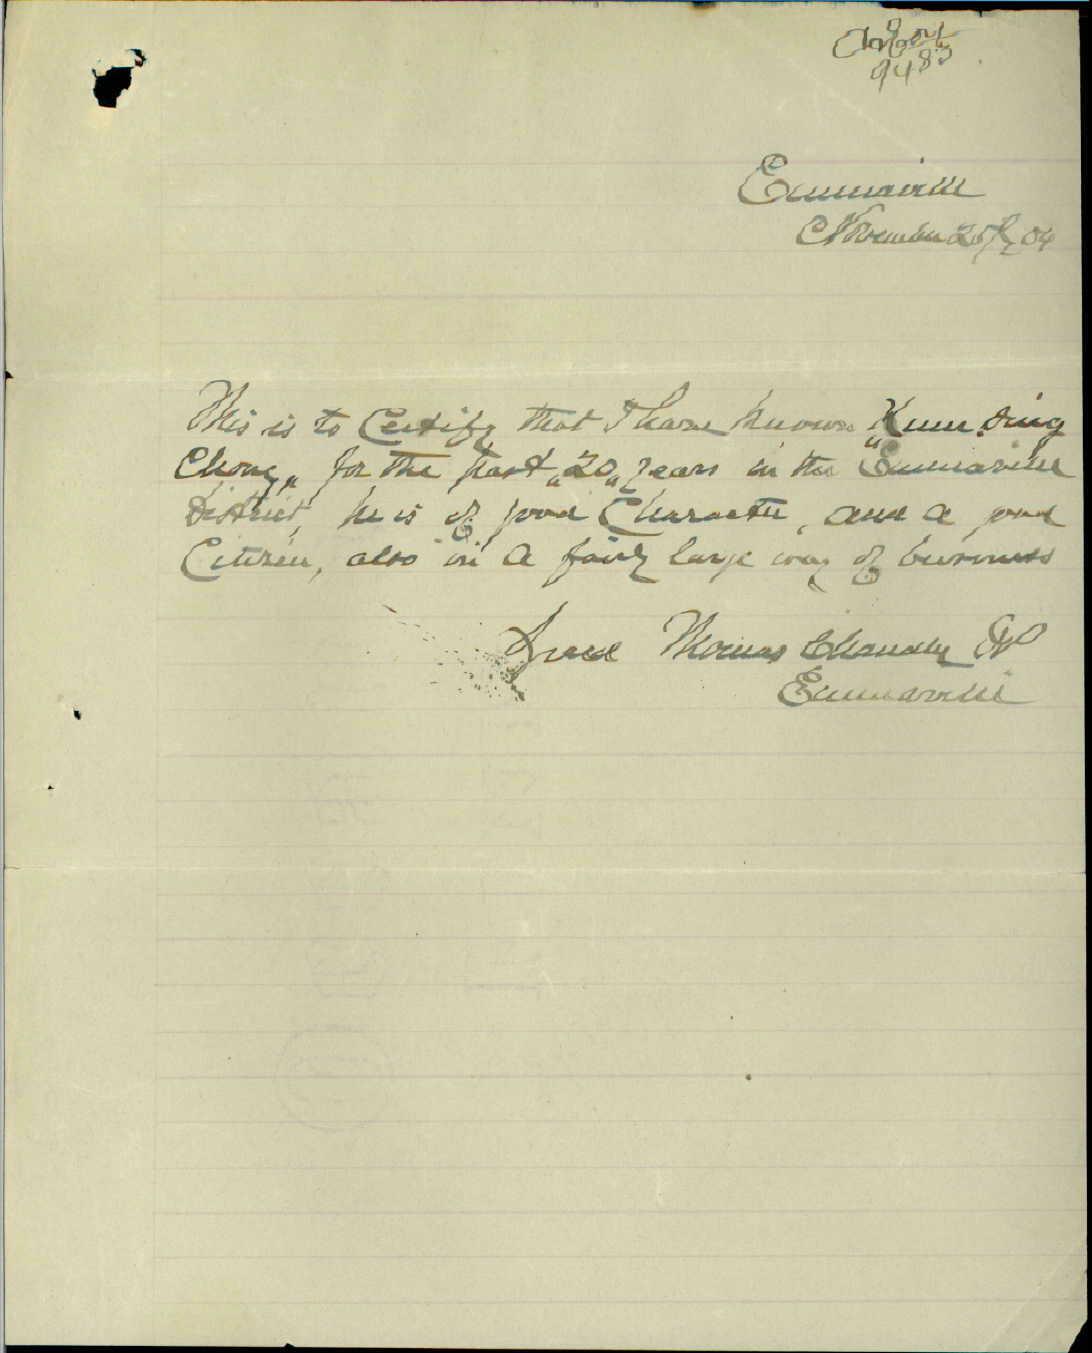 9483
Emmaville
November 25th 04
This is to Certify that I have known "Kum Sing
Chong" for the past "20" years in the Emmaville
District, he is of good Character, and a good
Citizen, also in a fairly large way of business
Thomas JP
Emmaville